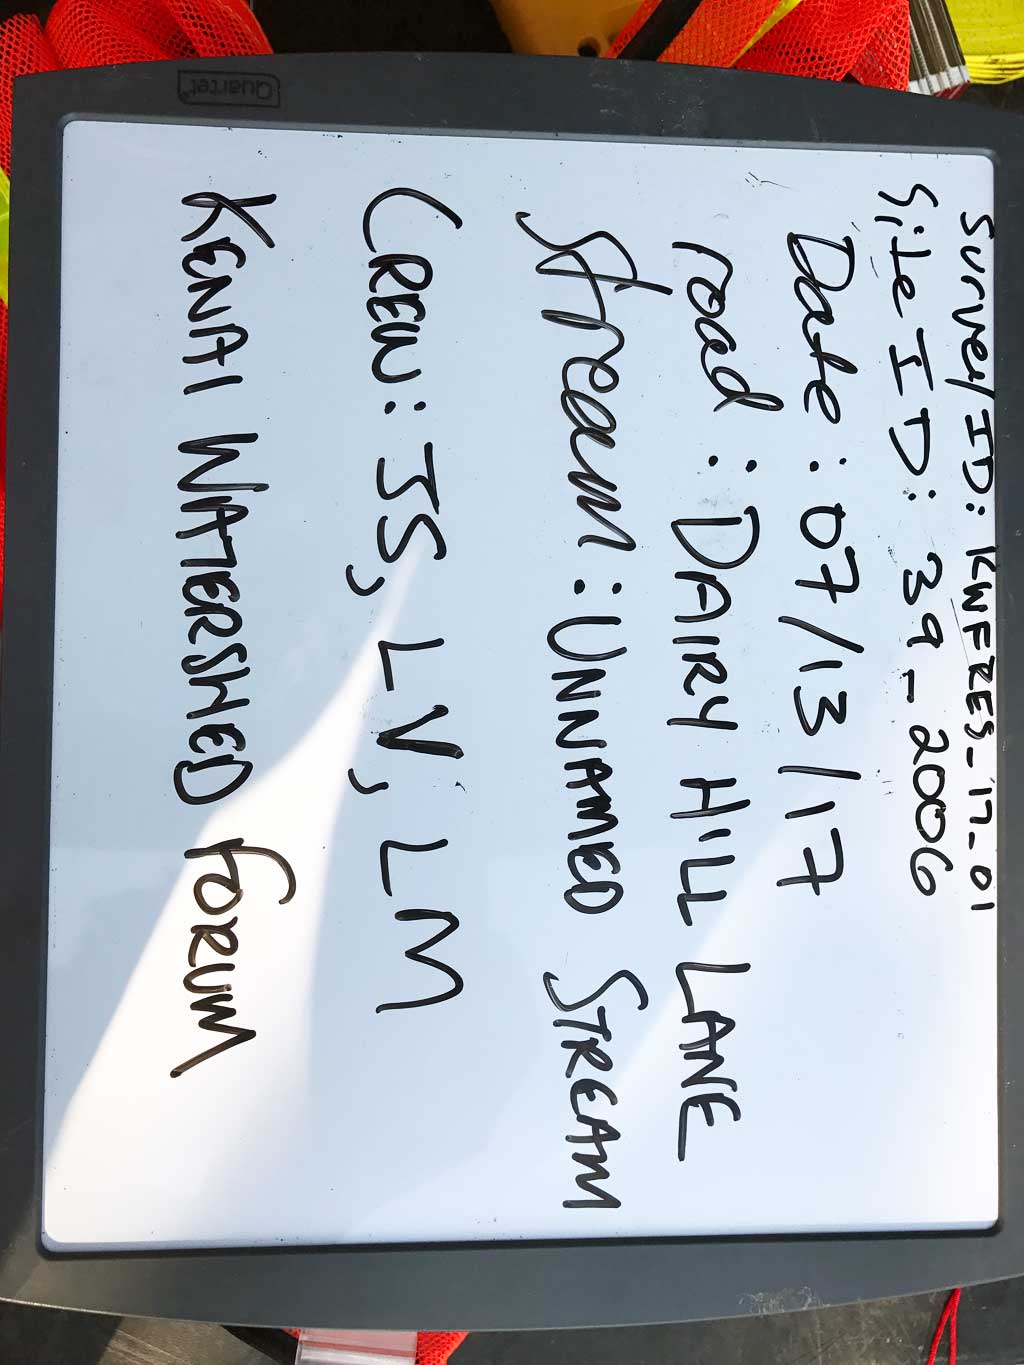 Survey ID: KWFRES_17_01
Site ID: 39_2006
Date: 07/13/17
road: DAIRY HILL LANE
Stream: UNNAMED STREAM
CREW: JS, LV, LM
KENAI WATERSHED FORUM
Quartet